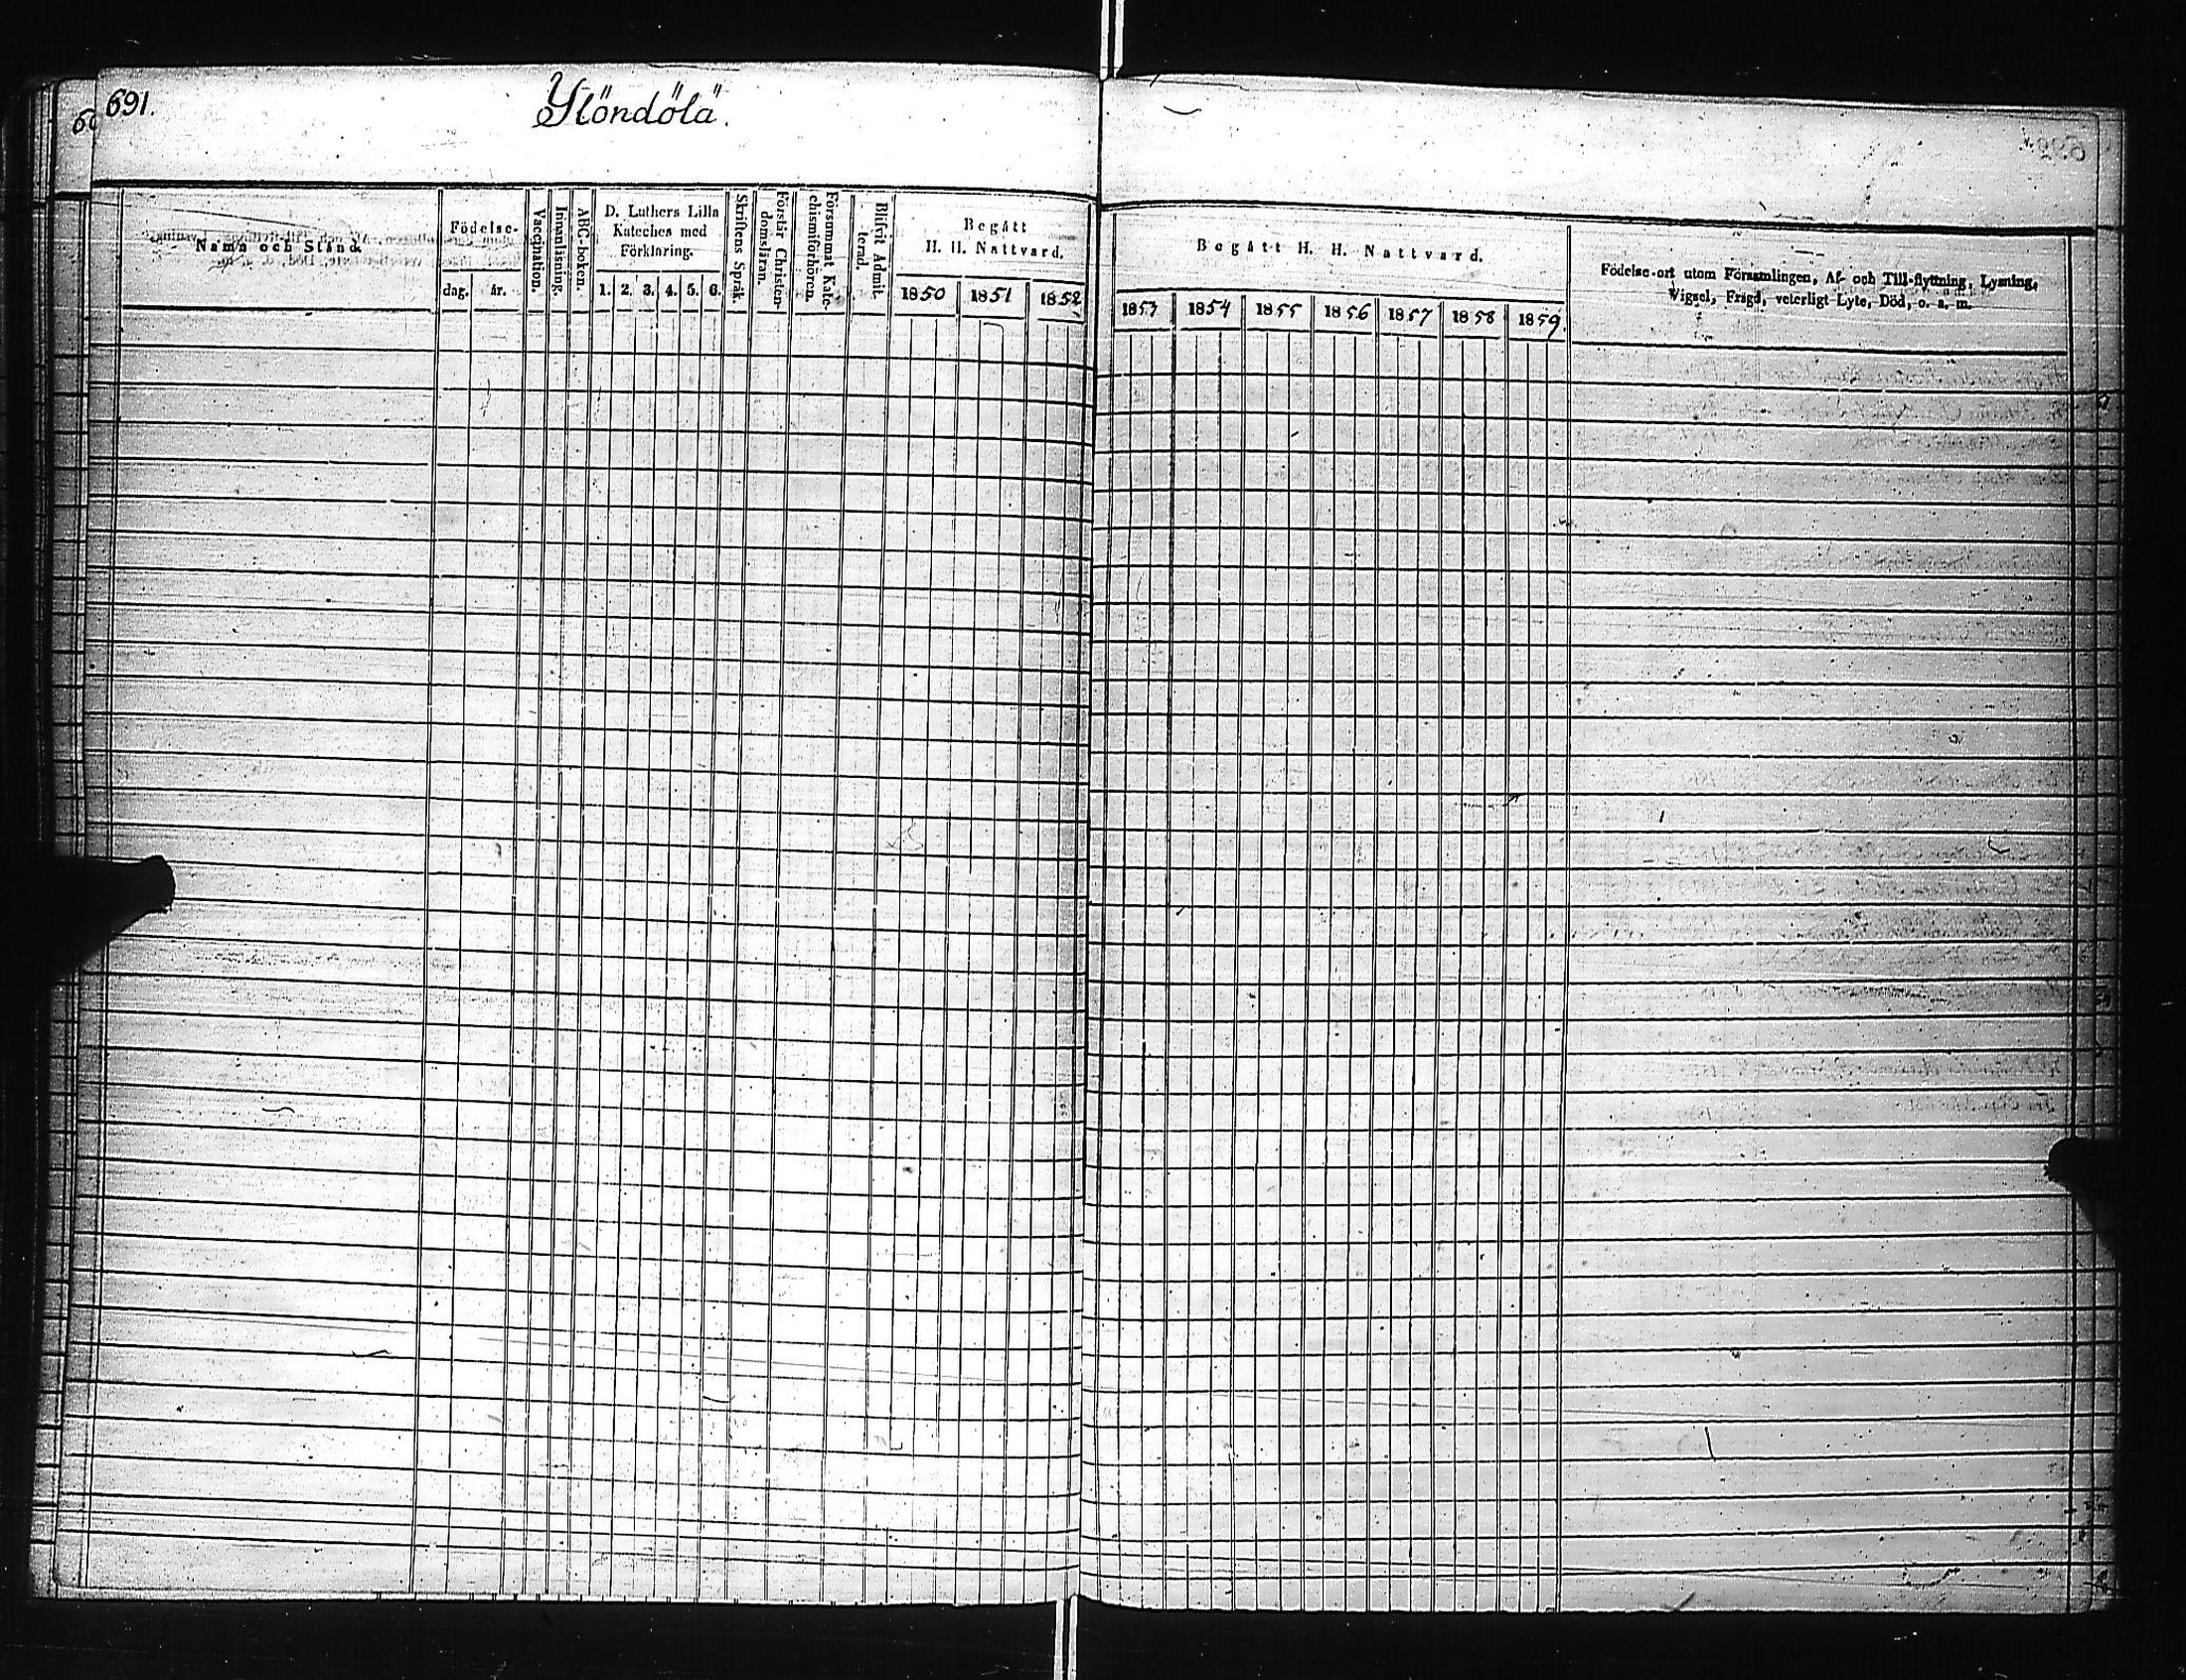 691.
Ylöndölä.
Namn och Stånd.
Födelse-
dag. år.
Vaccination.
Innanläsning.
ABC-boken.
D. Luthers Lilla
Kateches med
Förklaring.
1. 2. 3. 4. 5. 6.
Skriftens Språk.
Förstår Christen-
domsläran.
Försummat Kate-
chismiförhören.
Blifvit Admit-
terad.
Begått
H. H. Nattvard.
1850 1851 1852
Begått H. H. Nattvard.
1853 1854 1855 1856 1857 1858 1859.
Födelse-ort utom Församlingen, Af- och Till-flyttning, Lysning,
Vigsel, Frägd, veterligt Lyte, Död, o. s. m.